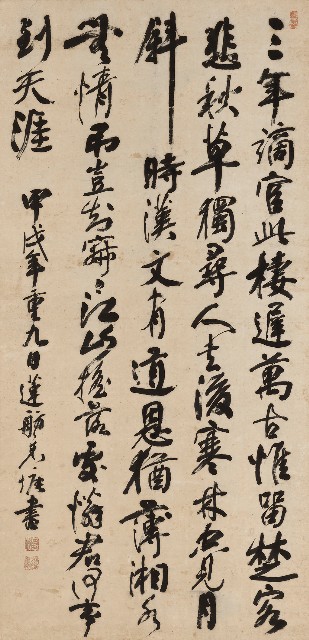 三年謫官此棲遲萬古惟留楚客
悲秋草獨尋人去後寒林空見日
斜時漢文有道恩猶薄湘水
無情弔豈知寂〻江山搖落處憐君何事
到天涯
甲戌年重九日蓮舫書